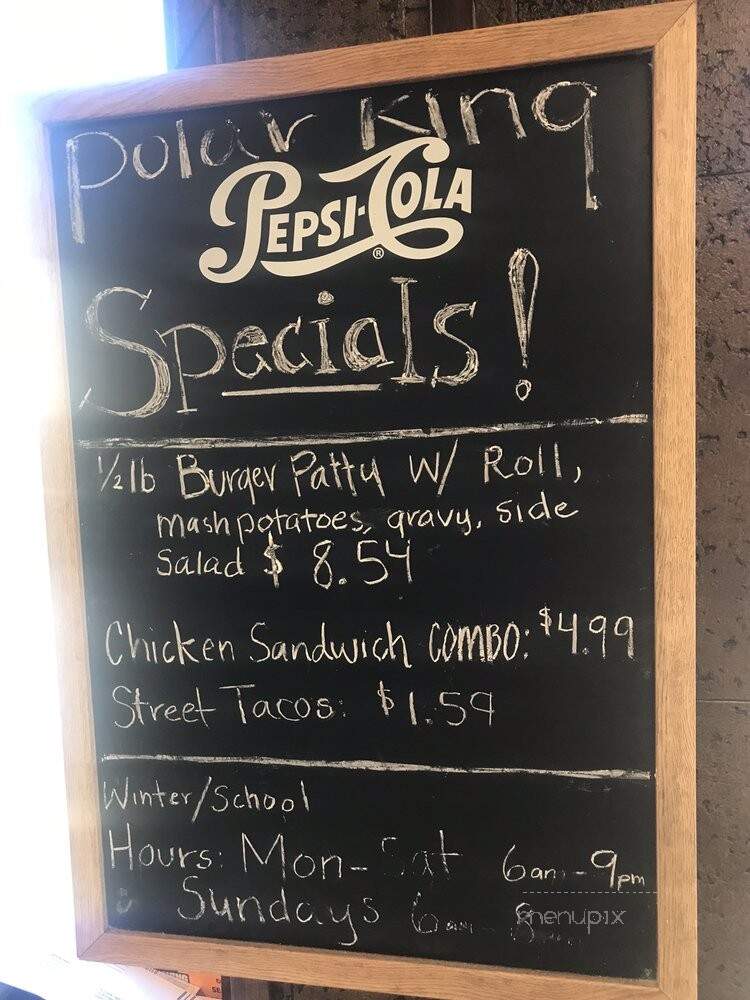 Polar King
PEPSI-COLA
®
Specials!
1/2 lb Burger Patty w/ Roll,
mash potatoes, gravy, side
Salad $ 8.54
Chicken Sandwich COMBO: $4.99
Street Tacos: $1.59
Winter/School
Hours: Mon-Sat 6am-9pm
Sundays 6am-
menupix